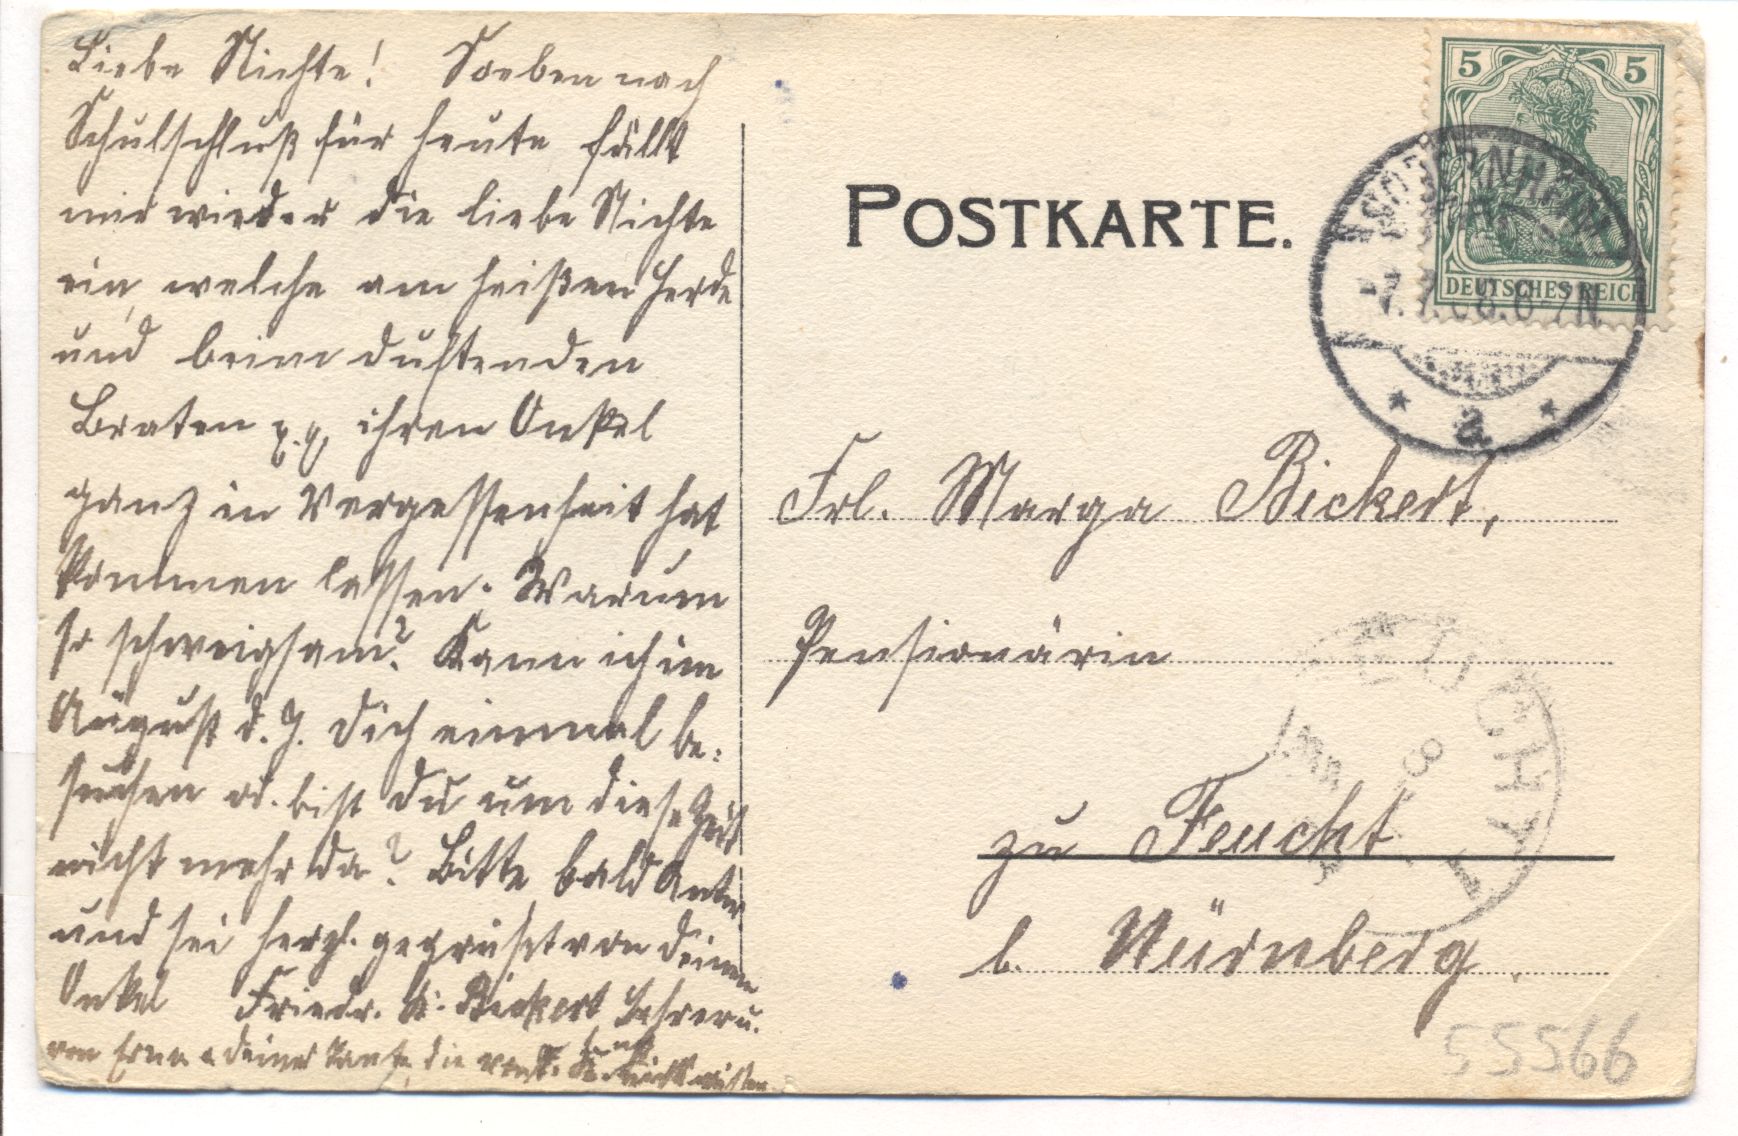 Liebe Nichte! Soeben nach
Schulschluß für heute fällt
mir wieder die liebe Nichte
ein, welche am heißen Herde
und beim duftenden
Braten z. Z. ihren Onkel
ganz in Vergessenheit hat
kommen lassen. Warum
so schweigsam? Kann ich im
August d. J. Dich einmal be-
suchen od. bist Du um diese Zeit
nicht mehr da? Bitte bald Antw.
und sei herzl. gegrüßt von Deinem
Onkel Friedr. K. Bickert Lehrer u.
von Erna u. Deiner Tante, die
POSTKARTE.
5 5
DEUTSCHES REICH
SOBERNHEIM
-7.7.08.6-7N
* a *
Frl. Marga Bickert,
Pensionärin
FEUCHT
8
zu Feucht
b. Nürnberg.
55566